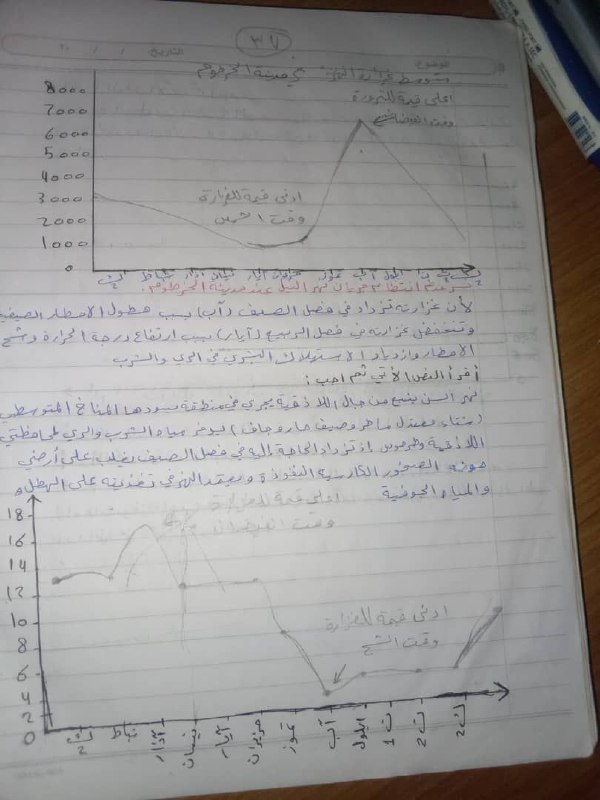 ٣٧
الموضوع
التاريخ / / ٢٠
متوسط غزارة النهر في مدينة الخرطوم
8000
7000
6000
5000
4000
3000
2000
1000
0
اعلى قيمة للغزارة
وقت الفيضان
ادنى قيمة للغزارة
وقت الشح
سر عدم انتظام جريان نهر النيل عند مدينة الخرطوم.
لأن غزارته تزداد في فصل الصيف (آب) بسبب هطول الامطار الصيفية
وتنخفض غزارته في فصل الربيع (أيار) بسبب ارتفاع درجة الحرارة وشح
الامطار وازدياد الاستهلاك البشري في الري والشرب
أقرأ النص الآتي ثم اجب:
نهر السن ينبع من جبال اللاذقية يجري في منطقة يسودها المناخ المتوسطي
(شتاء معتدل ماطر وصيف حار وجاف) ليوفر مياه الشرب والري لمحافظتي
اللاذقية وطرطوس إذ تزداد الحاجة إليه في فصل الصيف يغلب على أرضي
حوضه الصخور الكلسية النفوذة ويعتمد النهر في تغذيته على الهطل و
والمياه الجوفية
18
16
14
12
10
8
6
4
2
0
اعلى قيمة للغزارة
وقت الفيضان
ادنى قيمة للغزارة
وقت الشح
ك2
شباط
آذار
نيسان
أيار
حزيران
تموز
آب
ايلول
ت1
ت2
ك2